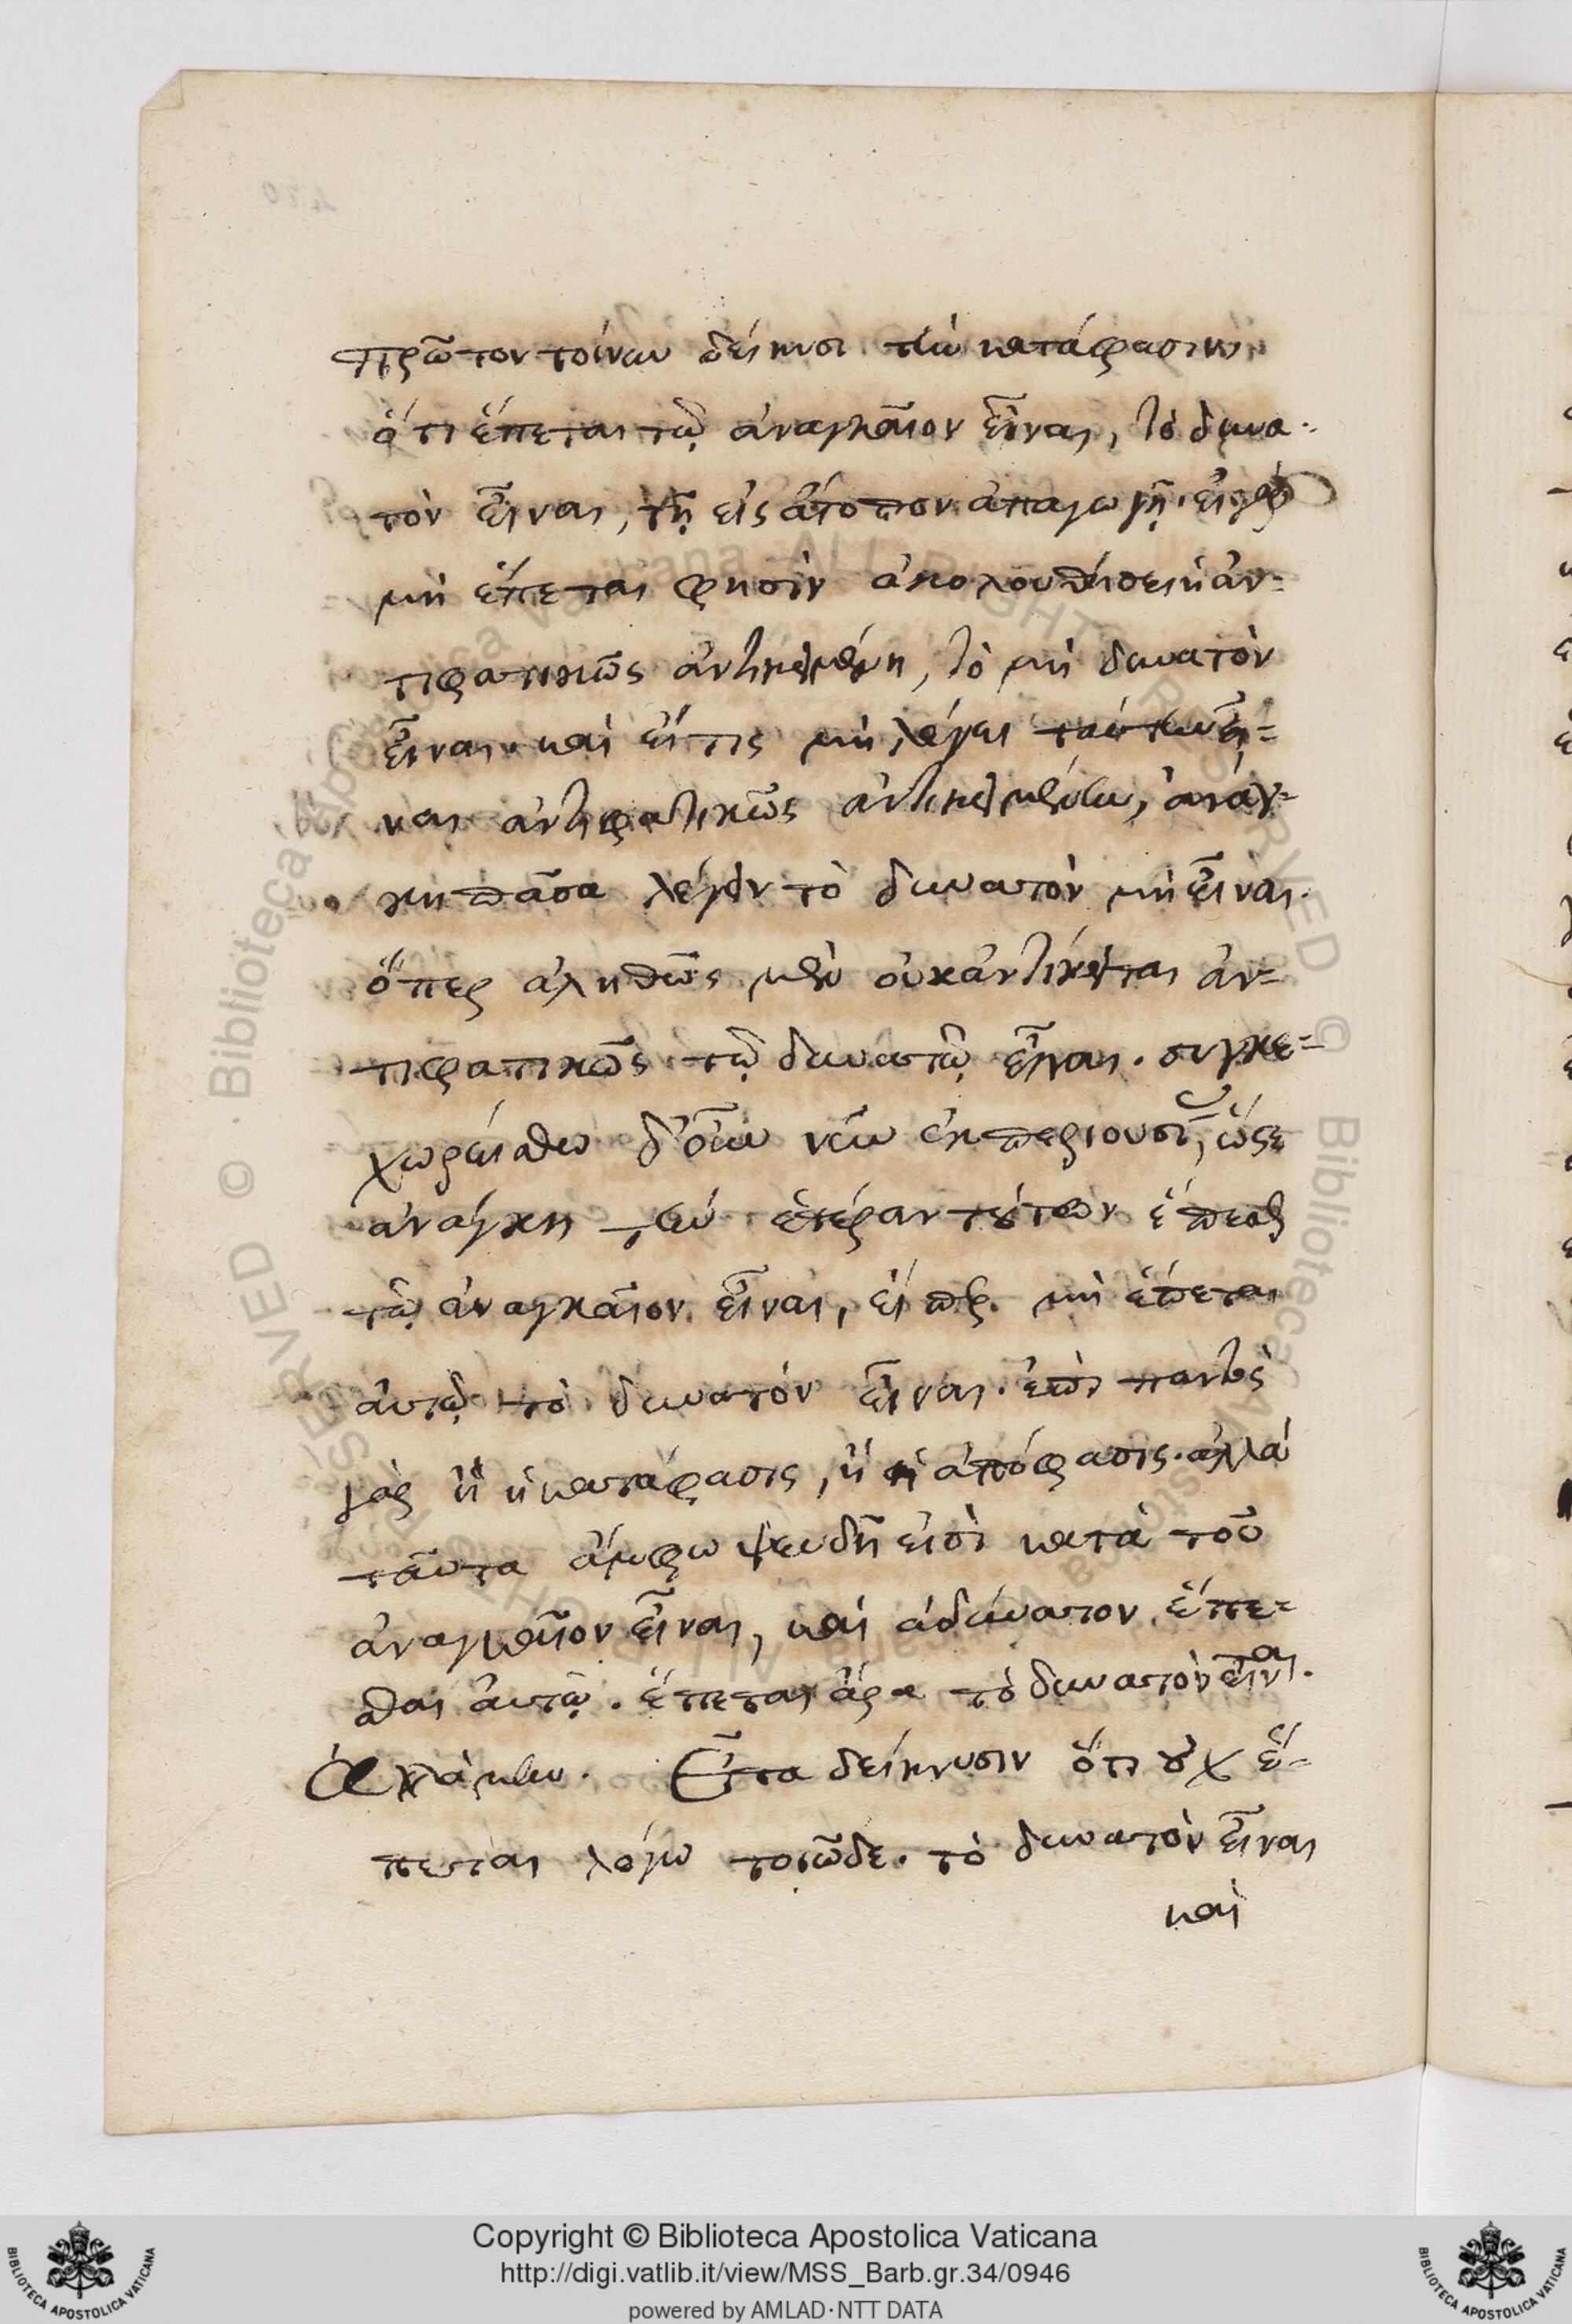 πρῶτον τοίνυν δείκνυσι τὴν κατάφασιν
ὅτι ἕπεται τῷ ἀναγκαῖον εἶναι, τὸ δυνα-
τὸν εἶναι, τῇ εἰς ἄτοπον ἀπαγωγῇ. εἰ γὰρ
μὴ ἕπεται φησὶν ἀκολουθήσει ἡ ἀν-
τιφατικῶς ἀντικειμένη, τὸ μὴ δυνατὸν
εἶναι. καὶ εἴ τις μὴ λέγει ταύτην εἶ-
ναι ἀντιφατικῶς ἀντικειμένην, ἀνάγ-
κη πᾶσα λέγειν τὸ δυνατὸν μὴ εἶναι.
ὅπερ ἀληθῶς μὲν οὐκ ἀντίκειται ἀν-
τιφατικῶς τῷ δυνατῷ εἶναι. συγκε-
χωρείσθω δ' οὖν νῦν ἐκ περιουσί, ὥστε
ἀνάγκη τὴν ἑτέραν τούτων ἕπεσθαι
τῷ ἀναγκαῖον εἶναι, εἴπερ μὴ ἕπεται
αὐτῷ τὸ δυνατὸν εἶναι. ἐπὶ παντὸς
γὰρ ἢ ἡ κατάφασις, ἢ ἡ ἀπόφασις. ἀλλὰ
ταῦτα ἄμφω ψευδῆ εἰσὶ κατὰ τοῦ
ἀναγκαῖον εἶναι, καὶ ἀδύνατον ἕπε-
σθαι αὐτῷ. ἕπεται ἄρα τὸ δυνατὸν εἶναι.
Εἶτα δείκνυσιν ὅτι οὐχ ἕ-
πεται λόγω τοιῶδε. τὸ δυνατὸν εἶναι
καὶ
Copyright © Biblioteca Apostolica Vaticana
http://digi.vatlib.it/view/MSS_Barb.gr.34/0946
powered by AMLAD·NTT DATA